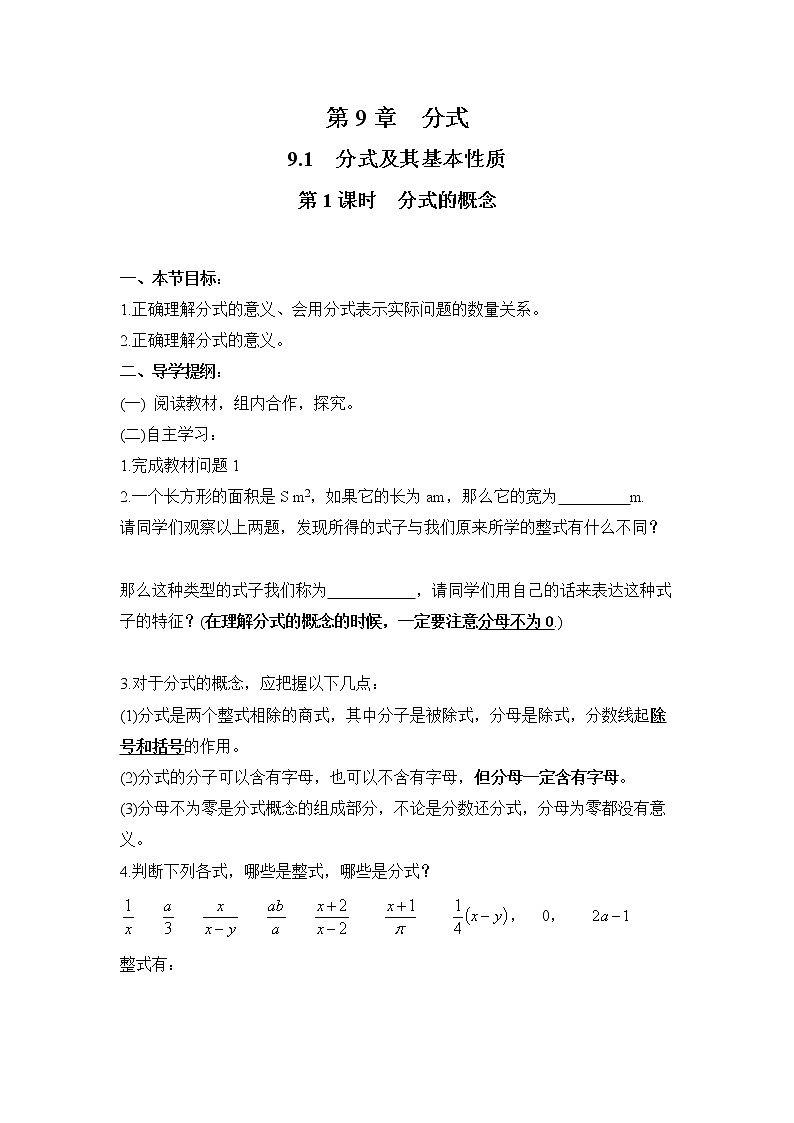 第9章　分式
9.1　分式及其基本性质
第1课时　分式的概念
一、本节目标：
1.正确理解分式的意义、会用分式表示实际问题的数量关系。
2.正确理解分式的意义。
二、导学提纲：
(一) 阅读教材，组内合作，探究。
(二)自主学习：
1.完成教材问题1
2.一个长方形的面积是S m²，如果它的长为am，那么它的宽为_________m.
请同学们观察以上两题，发现所得的式子与我们原来所学的整式有什么不同？
那么这种类型的式子我们称为___________，请同学们用自己的话来表达这种式
子的特征？(在理解分式的概念的时候，一定要注意分母不为0.)
3.对于分式的概念，应把握以下几点：
(1)分式是两个整式相除的商式，其中分子是被除式，分母是除式，分数线起除
号和括号的作用。
(2)分式的分子可以含有字母，也可以不含有字母，但分母一定含有字母。
(3)分母不为零是分式概念的组成部分，不论是分数还分式，分母为零都没有意
义。
4.判断下列各式，哪些是整式，哪些是分式？
1/x　a/3　x/(x−y)　ab/a　(x+2)/(x−2)　(x+1)/π　1/4(x−y)，　0，　2a−1
整式有：